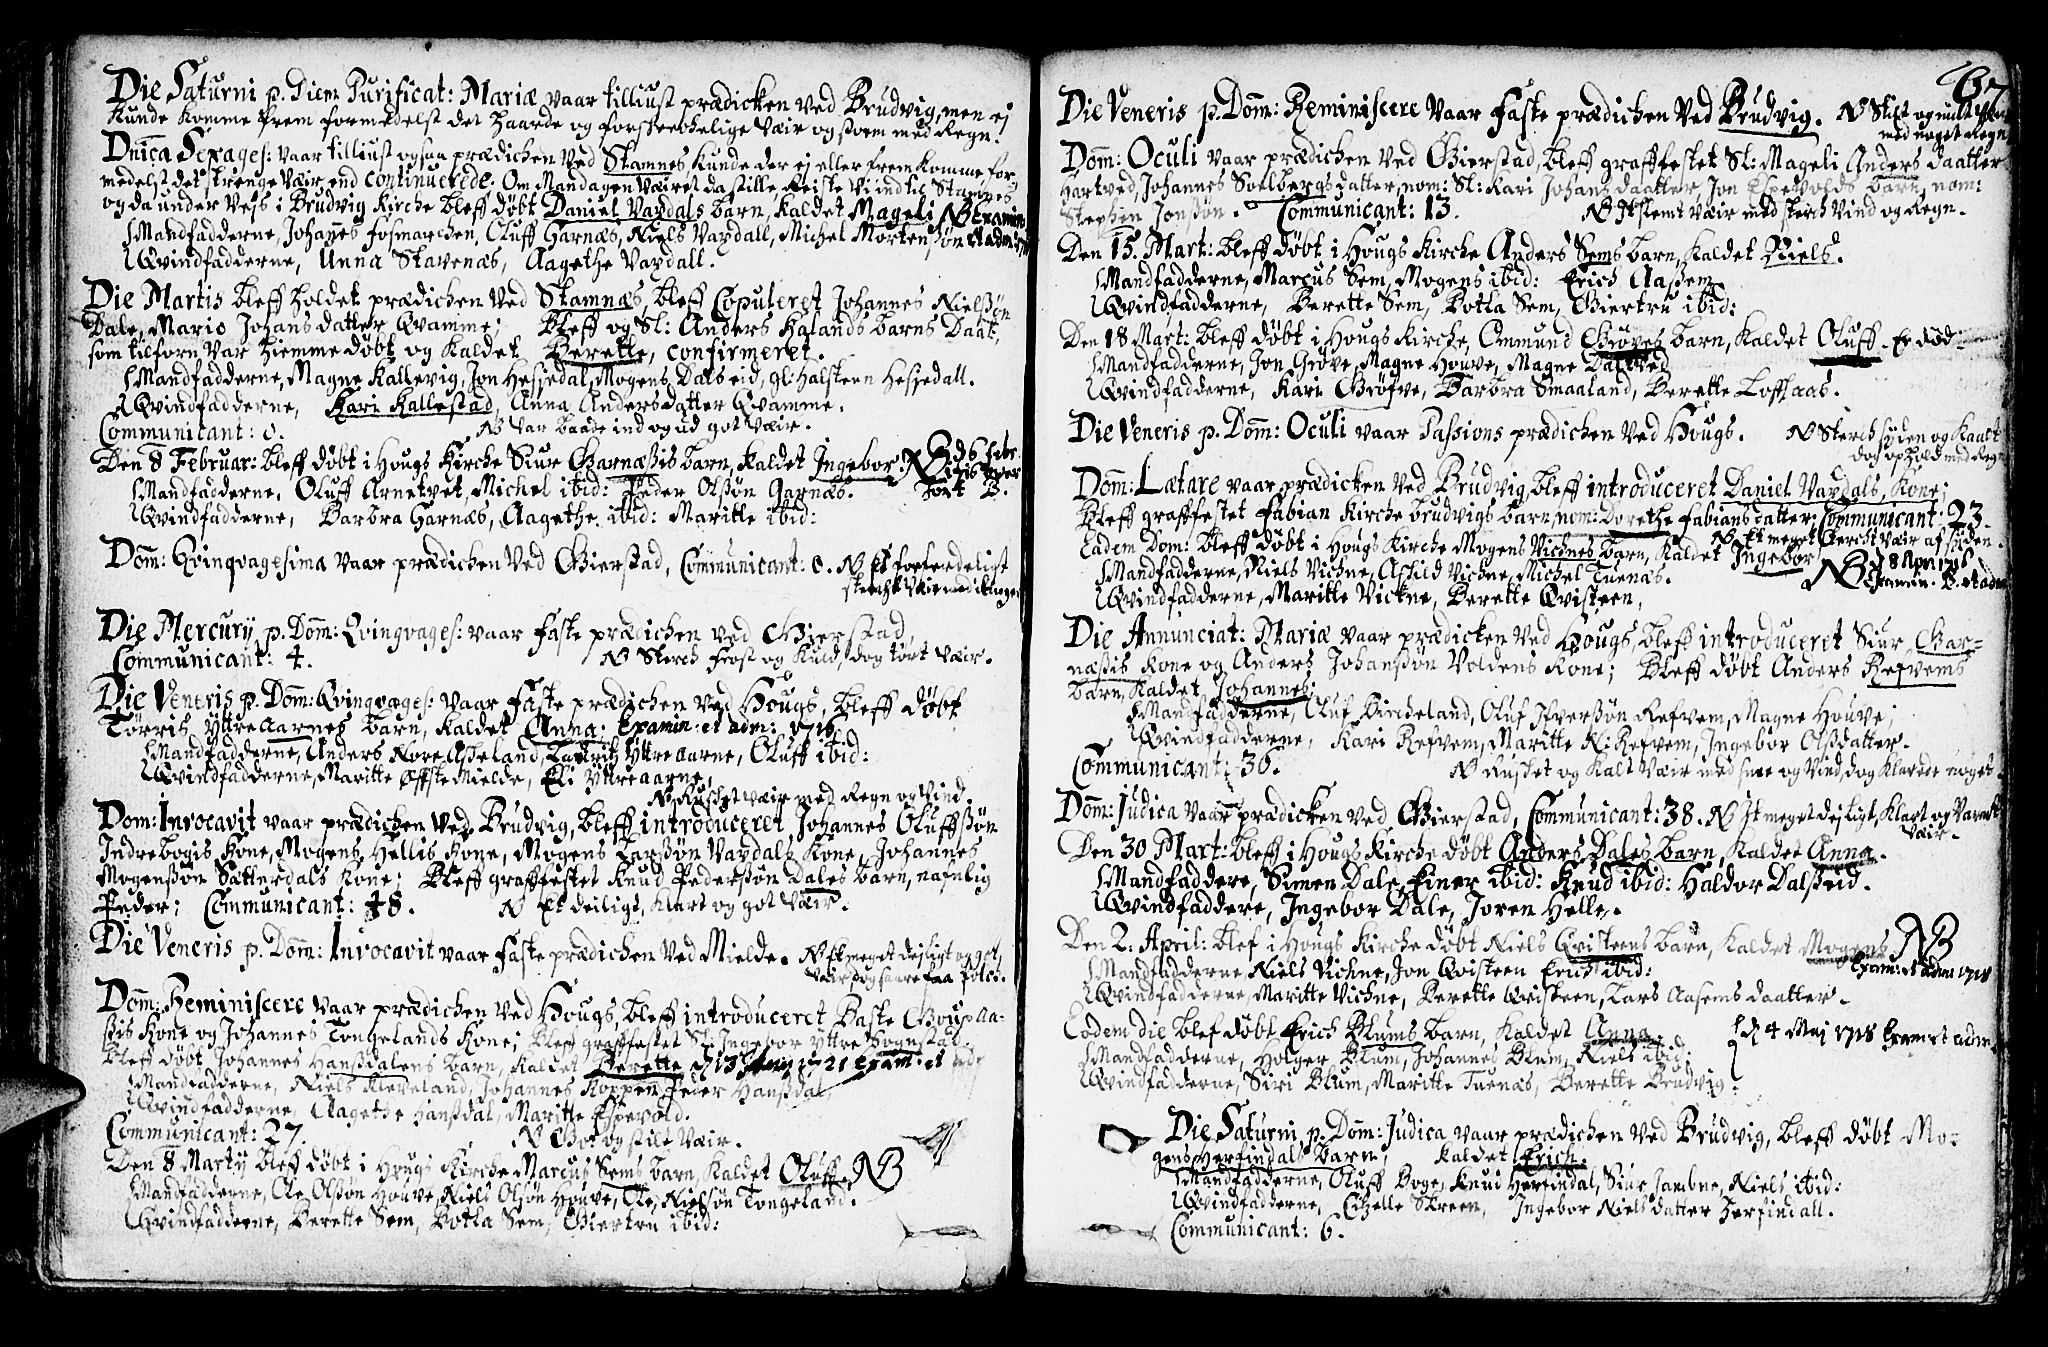 Die Saturni p. Diem Purificat: Mariæ vaar tilliust prædicken ved Brudvig, men ej
Kunde komme frem formedelst det haarde og forskrechelige Væir og storm med Regn.
Dnica Sexages: vaar tilliust ogsaa prædichen ved Stamnes, kunde der ej eller frem komme for-
medelst det strenge Væir end continuerede. Om Mandagen Væiret da stille, Reiste Vi ind til Stamnes
og da under Vejs i Brudvig Kirche bleff døbt Daniel Vaxdals barn, kaldet Mageli NB Examin:
Mandfadderne, Johanes fosmarchen, Oluff Garnæs, Niels Vaxdall, Michel Mortenssøn et adm:
Qvindfadderne, Anna Stavenæs, Aagethe Vaxdall.
Die Martis bleff holdet prædichen ved Stamnæs, bleff Copuleret Johannes Nielssøn
Dale, Mario Johans datter Qvamme; Bleff og Sl: Anders Kalands barns Daab,
som tilforn var hiemme døbt og kaldet Berette, confirmeret.
Mandfadderne, Magne Kallevig, Jon Hessedal, Mogens Dalseid, gl: Halsteen Hessedall.
Qvindfadderne, Kari Kallestad, Anna Andersdatter Qvamme.
Communicant: 0. NB Var baade ind og ud got Væir.
Den 8 Februar: bleff døbt i Hougs Kirche Siur Garnæssis barn, kaldet Ingebor. NB
Mandfadderne, Oluff Arnetvet, Michel ibid: Peder Olssøn Garnæs.
Qvindfadderne, Barbra Garnæs, Aagethe ibid: Maritte ibid:
Dom: Qvinqvagesima vaar prædichen ved Gierstad, Communicant: 0. NB Et forferdeligt
stercht Væir med
Die Mercurij p. Dom: Qvingvages: vaar faste prædichen ved Gierstad,
Communicant: 4. NB Sterch frost og kuld, dog tørt Væir.
Die Veneris p. Dom: Qvingvages: vaar faste prædichen ved Hougs, bleff døbt
Tørris Yttreaarnes barn, kaldet Anna. Examin: et adm: 1716
Mandfadderne, Anders Nore Asseland, Lauritz Yttreaarne, Oluff ibid:
Qvindfadderne, Maritte Øffste Mielde, Eli Yttreaarne,
NB Rusket Væir med Regn og Vind
Dom: Invocavit vaar prædichen ved Brudvig, bleff introduceret Johannes Oluffssøn
Indrebogis Kone, Mogens Hellis Kone, Mogens Larssøn Vaxdals Kone, Johannes
Mogenssøn Sætterdals Kone; Bleff graffestet Knud Pederssøn Dales barn, nafnlig
Peder; Communicant: 18. NB Et deiligt, klart og got Væir.
Die Veneris p. Dom: Invocavit vaar faste prædichen ved Mielde. NB Et meget dejligt og got
Væir dog saare faa folck.
Dom: Reminiscere vaar prædichen ved Hougs, bleff introduceret Baste Goupaa-
ssis Kone og Johannes Tongelands Kone; Bleff graffestet Sl: Ingebor Yttre Bognestad.
Bleff døbt Johannes Hanssdalens barn, kaldet Berette 1721 Exam: et adm
Mandfadderne, Niels Kleveland, Johannes Koppen, Peder Hanssdal,
Qvindfadderne, Aagethe Hanssdal, Maritte Espevold.
Communicant: 27. NB Got og stille Væir.
Den 8 Martij bleff døbt i Hougs Kirche Marcus Sems barn, kaldet Oluff. NB
Mandfadderne, Ole Olssøn Houve, Niels Olssøn Houve, Ole Nielssøn Tongeland.
Qvindfadderne, Berette Sem, Botla Sem, Giertru ibid:
67
Die Veneris p. Dom: Reminiscere vaar faste prædichen ved Brudvig. NB Stift og mult Væir
med noget Regn
Dom: Oculi vaar prædichen ved Gierstad, bleff graffestet Sl: Mageli Anders daatter
Hartved, Johannes Sollbergs datter, nom: Sl: Kari Johans daatter, Jon Espevolds barn, nom:
Stephen Jonssøn. Communicant: 13. NB It slemt Væir med sterch Vind og Regn.
Den 15. Mart: bleff døbt i Hougs Kirche Anders Sems barn, kaldet Niels.
Mandfadderne, Marcus Sem, Mogens ibid: Erich Aassem
Qvindfadderne, Berette Sem, Botla Sem, Giertru ibid:
Den 18 Mart: bleff døbt i Hougs Kirche, Ommund Grøves barn, kaldet Oluff. Er død
Mandfadderne, Jon Grøve, Magne Houve, Magne Daltved
Qvindfadderne, Kari Grøfve, Barbra Smaaland, Berette Lofftaas.
Die Veneris p. Dom: Oculi vaar Passions prædichen ved Hougs. NB Sterch syden og Kaalt
dog ophold med Regn
Dom: Lætare vaar prædicken ved Brudvig, bleff introduceret Daniel Vaxdals Kone;
Bleff graffestet Fabian Kirche Brudvigs barn, nom: Dorethe Fabians datter; Communicant: 23.
NB Et meget sterckt Væir af syden.
Eadem Dom: bleff døbt i Hougs Kirche Mogens Vichnes barn, kaldet Ingebor NB 8 Apr: 1716
Mandfadderne, Niels Vichne, Askild Vichne, Michel Tuenæs. Examin: et adm
Qvindfadderne, Maritte Vickne, Berette Qvisteen,
Die Annunciat: Mariæ vaar prædicken ved Hougs, bleff introduceret Siur Gar-
næssis Kone og Anders Johanssøn Voldens Kone; Bleff døbt Anders Refvems
barn, kaldet Johannes;
Mandfadderne, Oluf Bircheland, Oluf Ifverssøn Refvem, Magne Houve;
Qvindfadderne, Kari Refvem, Maritte N: Refvem, Ingebor Olssdatter.
Communicant: 30. NB Rusket og Kalt Væir med snee og Vind, dog klarede noget
Dom: Judica vaar prædicken ved Gierstad, Communicant: 38. NB It meget dejligt, klart og Varmt
Væir.
Den 30 Mart: bleff i Hougs Kirche døbt Anders Dales barn, kaldet Anna.
Mandfaddere, Simen Dale, Einer ibid: Knud ibid: Haldor Dalsseid.
Qvindfaddere, Ingebor Dale, Joren Helle.
Den 2. April: blef i Hougs Kirche døbt Niels Qvisteens barn, kaldet Mogens NB
Mandfadderne Niels Vichne, Jon Qvisteen Erich ibid: Exam: et adm 1718
Qvindfadderne, Maritte Vichne, Berette Qvisteen, Lars Aasems daatter.
Eodem die blef døbt Erich Blums barn, kaldet Anna. d 4 Maj 1718 Exam et adm
Mandfadderne, Holger Blum, Johannes Blum, Niels ibid:
Qvindfadderne, Siri Blum, Maritte Tuenæs, Berette Brudvig:
Die Saturni p. Dom: Judica vaar prædichen ved Brudvig, bleff døbt Mo-
gens Herfindals barn, kaldet Erich.
Mandfadderne, Oluff Boge, Knud Herfindal, Siur Jambne, Niels ibid:
Qvindfadderne, Citzelle Skreen, Ingebor Niels datter Herfindall.
Communicant: 6.